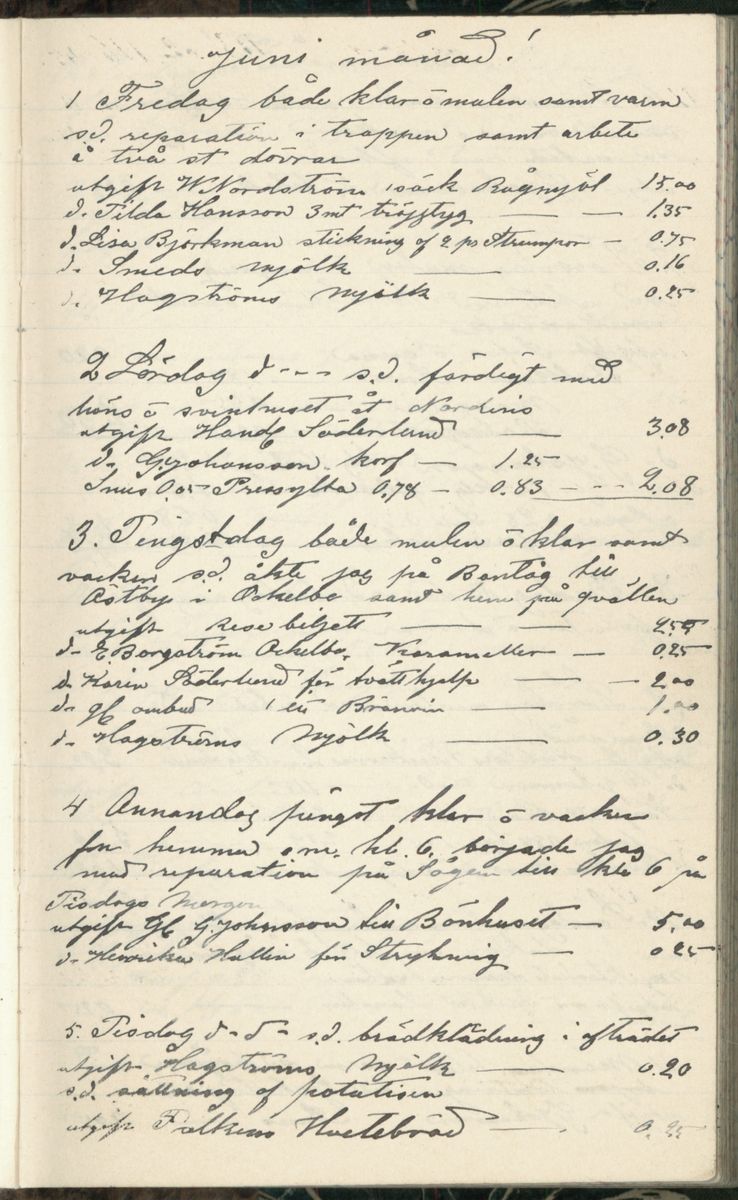 Juni månad!
1 Fredag både klar ö mulen samt varm
s.d. reparation i trappen samt arbete
å två st dörrar
utgift W. Nordström 1 säck Rågmjöl 15.00
d. Tilda Hansson 3 mt tröjtyg — — 1.35
d. Lisa Björkman stickning af 2 ps Strumpor — 0.75
d. Smeds Mjölk — 0.16
d. Hagströms Mjölk — 0.25
2 Lördag d - - - s.d. färdigt med
höns ö svinhuset åt Nordins
utgift Handl Söderlund — 3.08
d. G. Johansson korf — 1.25
Snus 0.05 Pressylta 0.78 — 0.83 - - - 2.08
3. Pingstdag både mulen ö klar samt
vacker s.d. åkte jag på Bantåg till
Åstby i Ockelbo samt hem på qvällen
utgift rese biljett — —
d. E. Borgström Ockelbo, Karameller — 0.25
d. Karin Söderlund för tvätthjelp — — 2.00
d. gl ombud 1 lit Bränvin — 1.00
d. Hagströms Mjölk — 0.30
4 Annandag pingst klar ö vacker
hemma em. kl. 6. började jag
med reparation på Sågen till kl 6 på
Tisdags Morgon
utgift Gl G. Johansson till Bönhuset — 5.00
d. Henrika Hallin för Strykning — 0.25
5. Tisdag d - d - s.d. brädklädning i afträdet
utgift Hagströms Mjölk — 0.20
s.d. sättning af potatisen
utgift Falkens Hvetebröd — 0.25